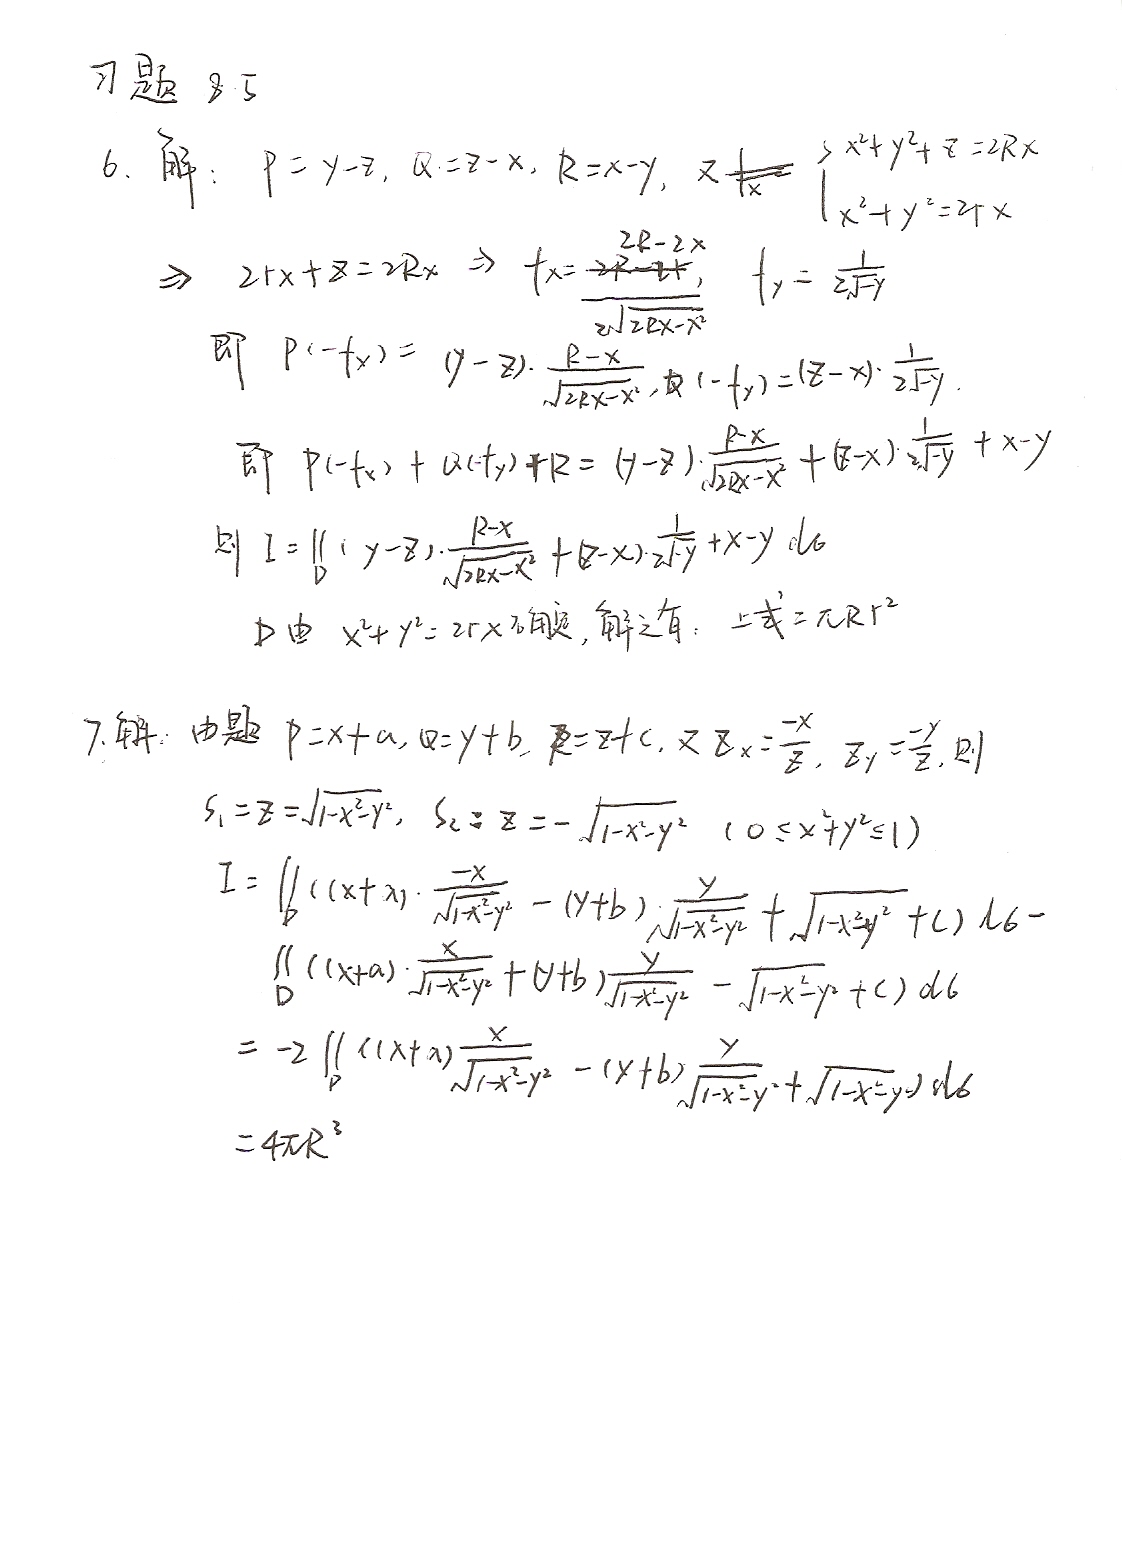 习题 8.5
6. 解: P=y-z, Q=z-x, R=x-y, 又 { x²+y²+z=2Rx
x²+y²=2rx
⇒ 2rx+z=2Rx ⇒ fx= (2R-2x)/(2√(2Rx-x²)), fy= 1/(2√-y)
即 P(-fx)= (y-z)· (R-x)/√(2Rx-x²), Q(-fy)=(z-x)· 1/(2√-y).
即 P(-fx)+Q(-fy)+R=(y-z)· (R-x)/√(2Rx-x²) +(z-x)· 1/(2√-y) +x-y
则 I=∬_D (y-z)· (R-x)/√(2Rx-x²) +(z-x)· 1/(2√-y) +x-y dσ
D由 x²+y²=2rx 确定, 解之有: 上式=πRr²
7. 解: 由题 P=x+a, Q=y+b, R=z+c, 又 Zx= -x/z, Zy= -y/z, 则
S₁=z=√(1-x²-y²), S₂: z=-√(1-x²-y²) (0≤x²+y²≤1)
I= ∬_D ((x+a)· -x/√(1-x²-y²) -(y+b)· y/√(1-x²-y²) +√(1-x²-y²) +c) dσ-
∬_D ((x+a)· x/√(1-x²-y²) +(y+b) y/√(1-x²-y²) -√(1-x²-y²) +c) dσ
= -2∬_D ((x+a) x/√(1-x²-y²) -(y+b) y/√(1-x²-y²) +√(1-x²-y²)) dσ
=4πR³